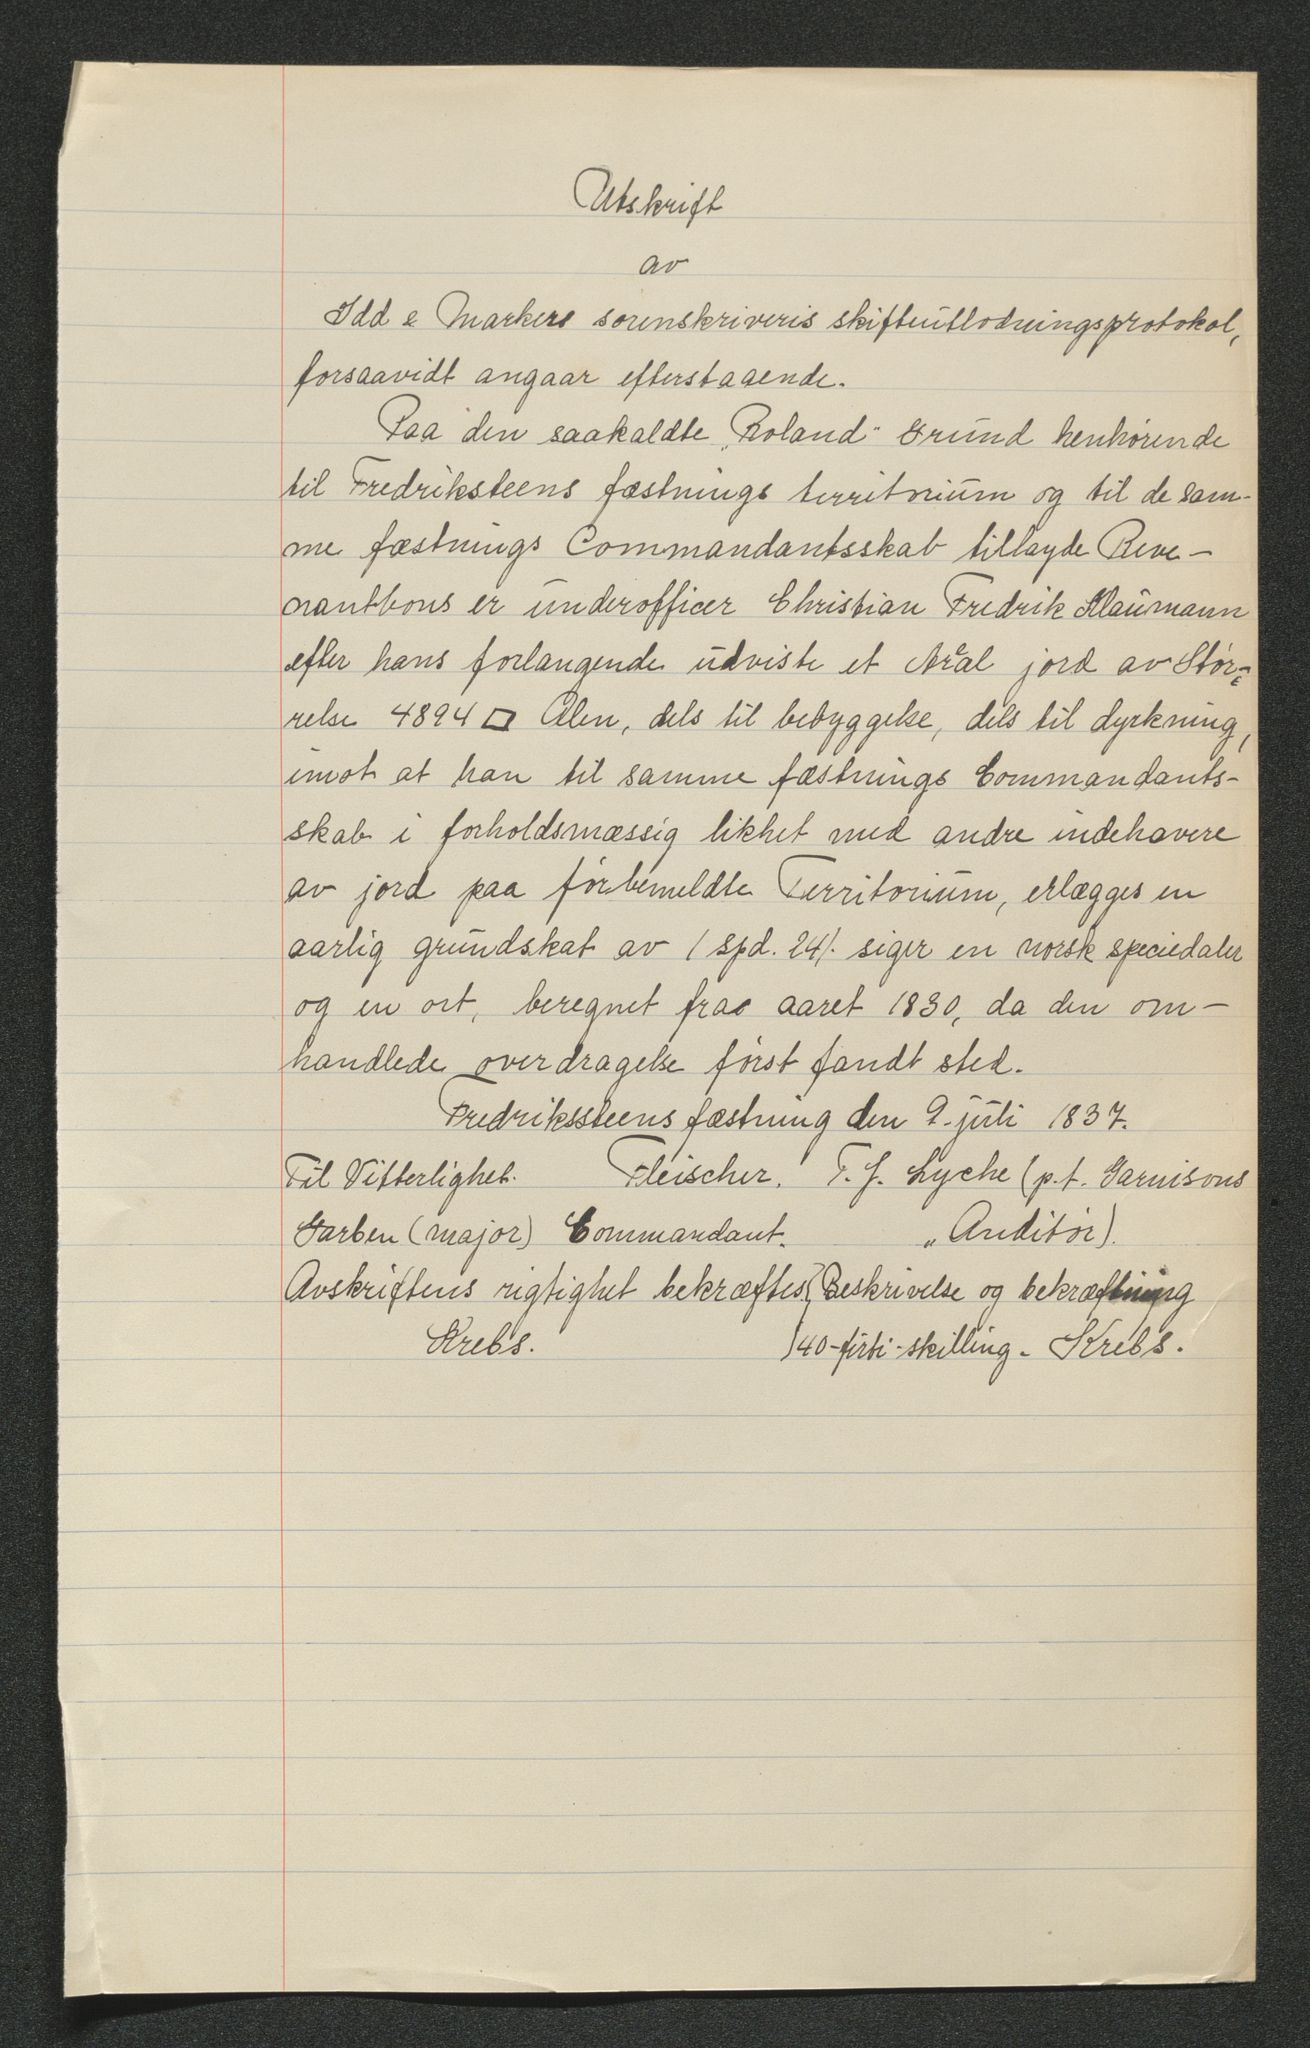 Utskrift
av
Idd & Markers sorenskriveris skifteutlodningsprotokol,
forsaavidt angaar efterstaaende.
Paa den saakaldte „Roland“ Grund henhørende
til Fredriksteens fæstnings territorium og til de sam-
me fæstnings Commandantsskab tillagde
er underofficer Christian Fredrik Klaumann
efter hans forlangende udviste et Areal jord av Stør-
relse 4894 □ Alen, dels til bebyggelse, dels til dyrkning,
imot at han til samme fæstnings Commandants-
skab i forholdsmæssig likhet med andre indehavere
av jord paa førbemeldte Territorium, erlægges en
aarlig grundskat av 1 spd. 24/. siger en norsk speciedaler
og en ort, beregnet fra aaret 1830, da den om-
handlede overdragelse først fandt sted.
Fredrikssteens fæstning den 9. juli 1837.
Til Vitterlighet. Fleischer. T. J. Lyche (p.t. Garnisons
Garben (major) Commandant. „Auditør).
Avskriftens rigtighet bekræftes (Beskrivelse og bekræftning
Krebs. )40-firti-skilling- Krebs.